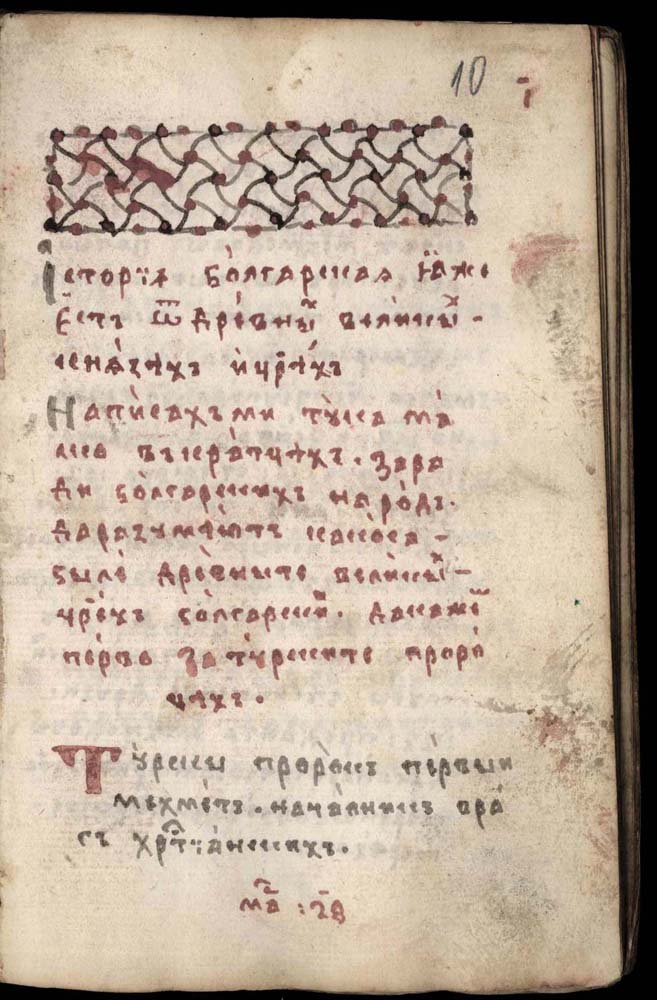 10 ї
Історїѧ болгарская ꙗже
есть ѿ древны̑ велики̑ -
кнѧзѣхъ и цр҃ѣхъ
Написахъ ми тꙋка ма
лко въкратцѣхъ. зара
ди болгарскихъ народъ.
да разꙋмѣютъ какоса -
было древныте велики̑ -
цр҃ехъ болгарски̑. да каже̑
перво за тꙋрските проро
цѣхъ.
Тꙋрскы пророкъ первыи
мехметъ. началникъ вра
гъ хр҃тїанскихъ.